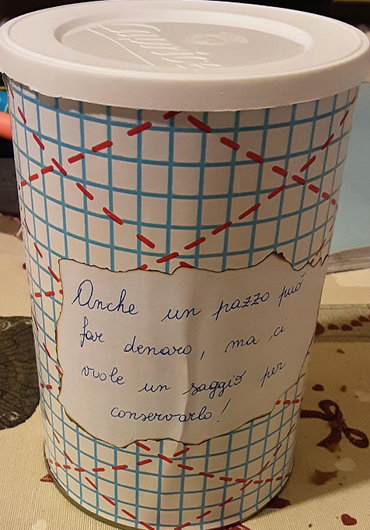 Anche un pazzo può
far denaro, ma ci
vuole un saggio per
conservarlo!